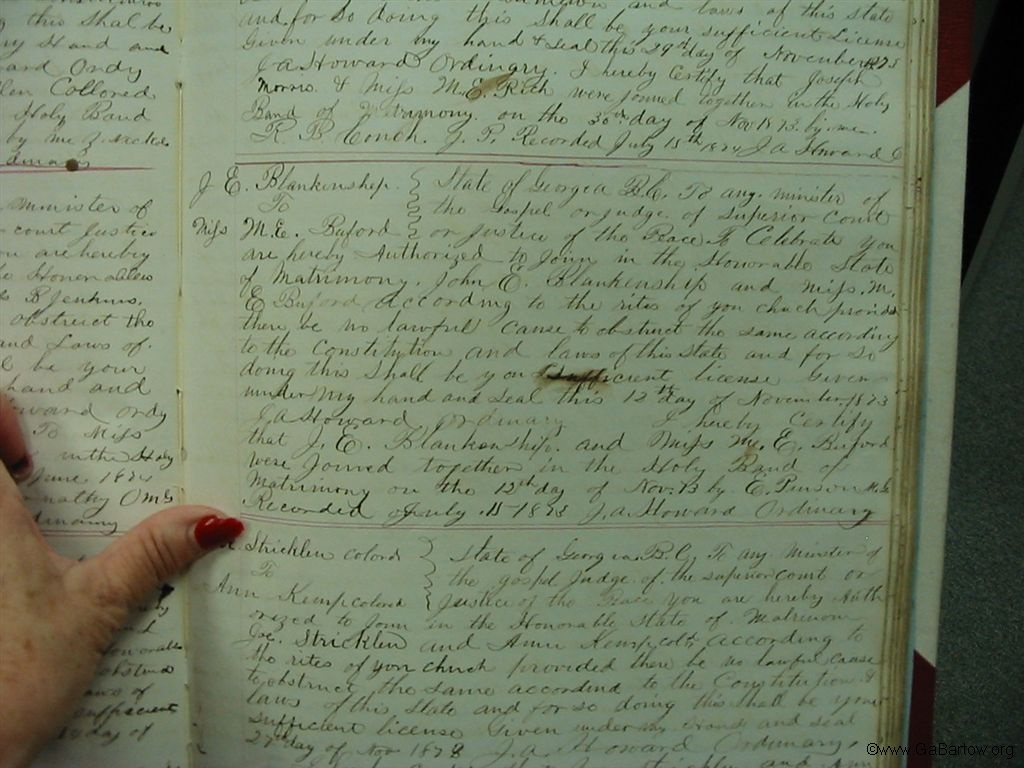 this Shall be
my Hand and
ward Ordy
Colored
Holy Band
by me
minister of
court Justice
are hereby
Honor ables
B Jenkins.
obstruct the
and Laws of.
be your
hand and
Howard Ordy
To Miss
in the Holy
June 1874
and laws of this State
and for So doing this Shall be your Sufficient License
Given under my hand & Seal this 29th day of November 1873
J. A. Howard Ordinary. I hereby Certify that Joseph
Morris & Miss M. E. Rich were joined together in the Holy
Band of Matrimony. on the 30th day of Nov 1873. by me.
R. B. Couch. J. P. Recorded July 15th 1874 J A Howard O
J E. Blankenship.
To
Miss M. E. Buford
State of Georgia B. C. To any. minister of
the Gospel or judge. of Superior Court
or Justice of the Peace To Celebrate you
are hereby Authorized to Join in the Honorable State
of Matrimony. John E. Blankenship and Miss. M.
E Buford according to the rites of you chuch provided
there be no lawful cause to obstruct the same according
to the Constitution and laws of this State and for So
doing this Shall be your Sufficient license Given
under My hand and Seal this 12th day of November 1873
J A Howard Ordinary I hereby Certify
that J. E. Blankenship. and Miss M. E. Buford
were Joined together in the Holy Band of
Matrimony on the 12th day of Nov. 73 by E. Pinson M. G.
Recorded July 15 1873 J. A. Howard Ordinary
Stricklen colord
To
Ann Kemp colord
State of Georgia B. C. To any Minister of
the gospel Judge. of. the superior court or
Justice of the Peace you are hereby Auth
orized to Join in the Honorable State of Matrimony
Stricklen and Ann Kemp cold, according to
the rites of your chuch provided there be no lawful cause
to obstruct the same accordind to the Constitution &
laws of this State and for so doing this Shall be your
sufficient license Given under my hand and seal
27th day of Nov 1873 J. A. Howard Ordinary.
©www.GaBartow.org